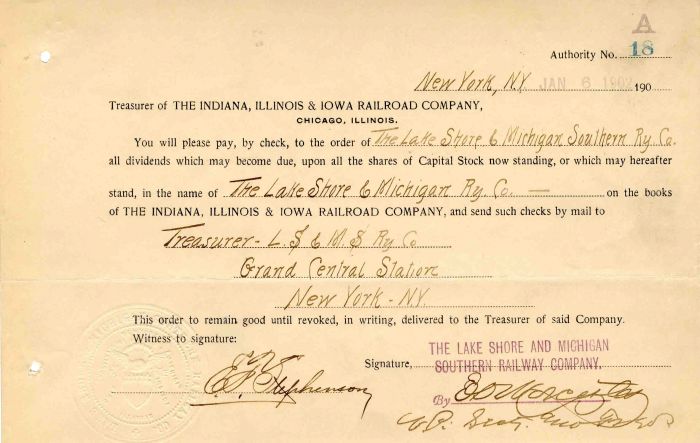 A
Authority No. 18
New York, N.Y. JAN 6 1902 190
Treasurer of THE INDIANA, ILLINOIS & IOWA RAILROAD COMPANY,
CHICAGO, ILLINOIS.
You will please pay, by check, to the order of The Lake Shore & Michigan Southern Ry. Co.
all dividends which may become due, upon all the shares of Capital Stock now standing, or which may hereafter
stand, in the name of The Lake Shore & Michigan Ry. Co. — on the books
of THE INDIANA, ILLINOIS & IOWA RAILROAD COMPANY, and send such checks by mail to
Treasurer - L. S & M. S Ry Co
Grand Central Station
New York - N.Y.
This order to remain good until revoked, in writing, delivered to the Treasurer of said Company.
Witness to signature:
Signature, THE LAKE SHORE AND MICHIGAN
SOUTHERN RAILWAY COMPANY.
Stephenson
By E D Worcester